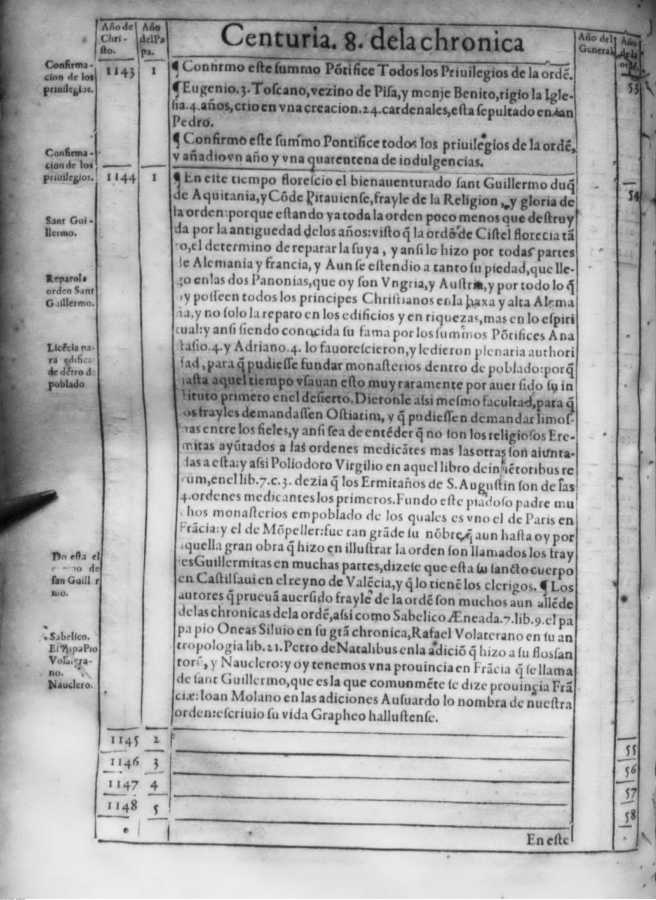 Año de Chri- sto.
Año del Pa pa.
Centuria. 8. dela chronica
Año del General
Confirma-
cion de los
priuilegios.
1143 1
¶ Confirmo este summo Põtifice Todos los Priuilegios de la ordẽ.
53
¶ Eugenio.3. Toscano, vezino de Pisa, y monje Benito, rigio la Igle-
sia.4.años, crio en vna creacion.24.cardenales, esta sepultado en san
Pedro.
¶ Confirmo este summo Pontifice todos los priuilegios de la ordẽ,
y añadio vn año y vna quarentena de indulgencias.
Confirma-
cion de los
priuilegios.
1144 1
¶ En este tiempo florescio el bienauenturado sant Guillermo duq̃
54
de Aquitania, y Cõde Pitauiense, frayle de la Religion, y gloria de
la orden: porque estando ya toda la orden poco menos que destruy
Sant Gui-
llermo.
da por la antiguedad delos años: visto q̃ la ordẽ de Cistel florecia tã
to, el determino de reparar la suya, y ansi lo hizo por todas partes
de Alemania y francia, y Aun se estendio a tanto su piedad, que lle-
Reparo la
orden Sant
Guillermo.
go enlas dos Panonias, que oy son Vngria, y Austria, y por todo lo q̃
oy posseen todos los principes Christianos en la baxa y alta Alema
nia, y no solo la reparo en los edificios y en riquezas, mas en lo espiri
tual: y ansi siendo conocida su fama por los summos Põtifices Ana
Licẽcia pa-
ra edificar
de dẽtro de
poblado
stasio.4.y Adriano.4. lo fauorescieron, y le dieron plenaria authori
dad, para q̃ pudiesse fundar monasterios dentro de poblado: porq̃
hasta aquel tiempo vsauan esto muy raramente por auer sido su in
stituto primero enel desierto. Dieronle assi mesmo facultad, para q̃
los frayles demandassen Ostiatim, y q̃ pudiessen demandar limos-
nas entre los fieles, y ansi sea de entẽder q̃ no son los religiosos Ere-
mitas ayũtados a las ordenes medicãtes mas las otras son aiunta-
das a esta: y assi Polidoro Virgilio en aquel libro de inuẽtoribus re
rum, en el lib.7.c.3. dezia q̃ los Ermitaños de S. Augustin son de las
4.ordenes medicantes los primeros. Fundo este piadoso padre mu
chos monasterios en poblado de los quales es vno el de Paris en
Frãcia: y el de Mõpeller: fue tan grãde su nõbre, q̃ aun hasta oy por
aquella gran obra q̃ hizo en illustrar la orden son llamados los fray
Do esta el
cuerpo de
san Guill r
mo.
les Guillermitas en muchas partes, dizese que esta su sancto cuerpo
en Castilfaui en el reyno de Valẽcia, y q̃ lo tienẽ los clerigos. ¶ Los
autores q̃ prueuã auer sido frayle de la ordẽ son muchos aun allẽde
delas chronicas dela ordẽ, assi como Sabelico Æneada.7.lib.9. el pa
Sabelico.
El Papa Pio
Volaterra-
no.
Nauclero.
pa pio Oneas Siluio en su grã chronica, Rafael Volaterano en su an
tropologia lib.21. Petro de Natalibus en la adiciõ q̃ hizo a su flossan
torũ, y Nauclero: y oy tenemos vna prouincia en Frãcia q̃ se llama
de sant Guillermo, que es la que comunmẽte se dize prouincia Frã
ciæ: Ioan Molano en las adiciones Ausuardo lo nombra de nuestra
orden: escriuio su vida Grapheo hallustense.
1145 2
55
1146 3
56
1147 4
57
1148 5
58
En este